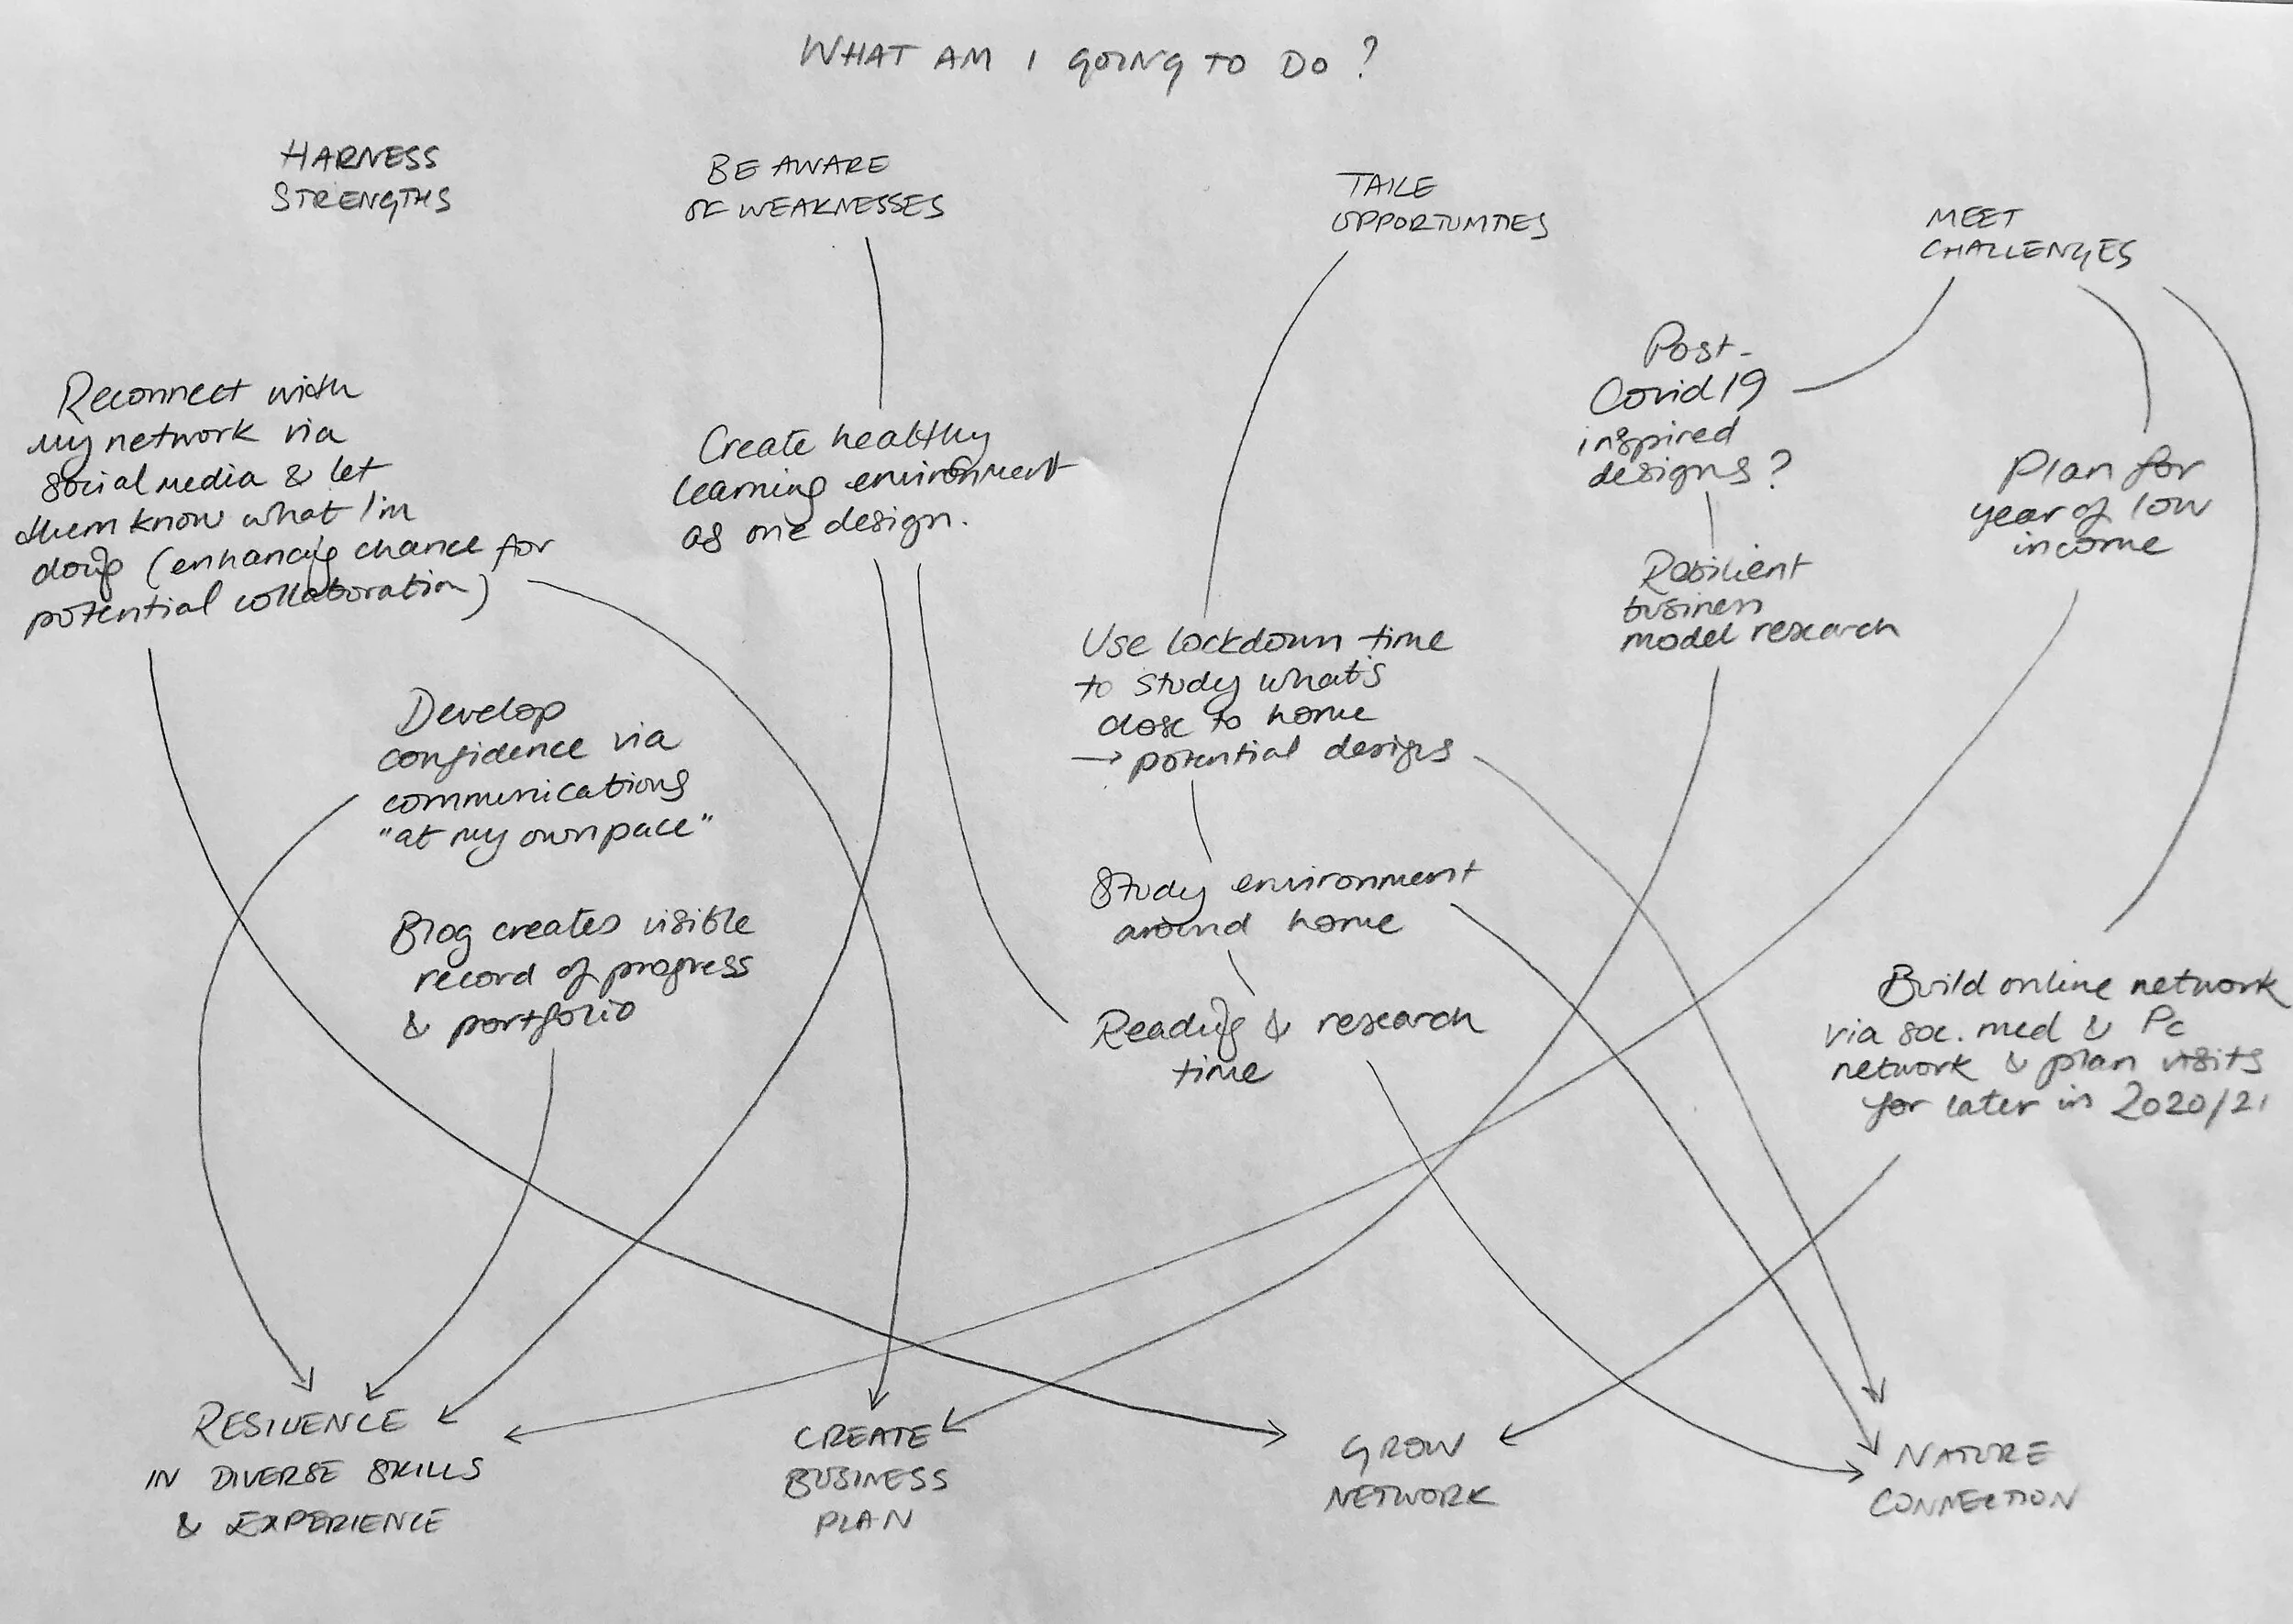 WHAT AM I GOING TO DO?
HARNESS
STRENGTHS
BE AWARE
OF WEAKNESSES
TAKE
OPPORTUNITIES
MEET
CHALLENGES
Reconnect with
my network via
social media & let
them know what I'm
doing (enhancing chance for
potential collaboration)
Develop
confidence via
communications
"at my own pace"
Blog creates visible
record of progress
& portfolio
Create healthy
learning environment
as one design.
Use lockdown time
to study what's
close to home
→ potential designs
Study environment
around home
Reading & research
time
Post-
Covid 19
inspired
designs?
Resilient
business
model research
Plan for
year of low
income
Build online network
via soc. med & Pc
network & plan visits
for later in 2020/21
RESILIENCE
IN DIVERSE SKILLS
& EXPERIENCE
CREATE
BUSINESS
PLAN
GROW
NETWORK
NATURE
CONNECTION